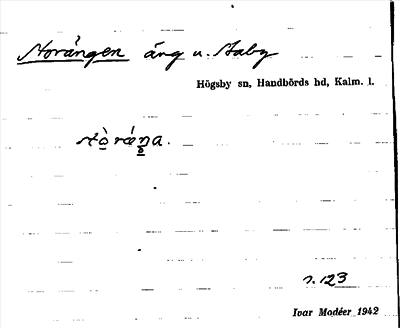 Storängen äng u. Staby
Högsby sn, Handbörds hd, Kalm. l.
stò̲ráŋ̲a.
s. 123
Ivar Modéer 1942